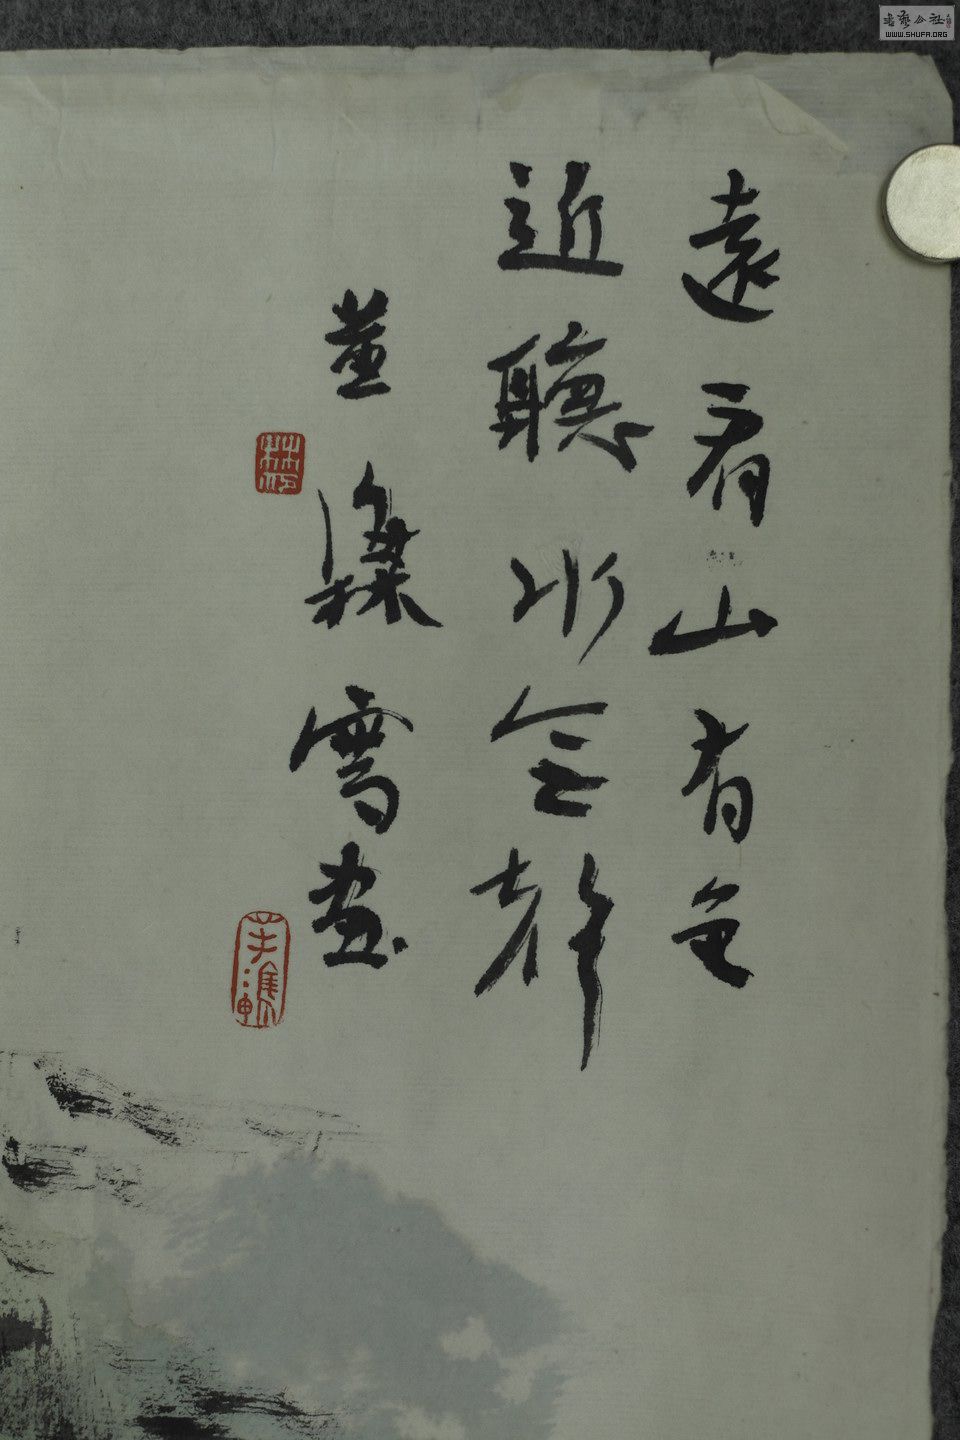 遠看山有色
近聽水無聲
董雪畫
書藝公社
WWW.SHUFA.ORG